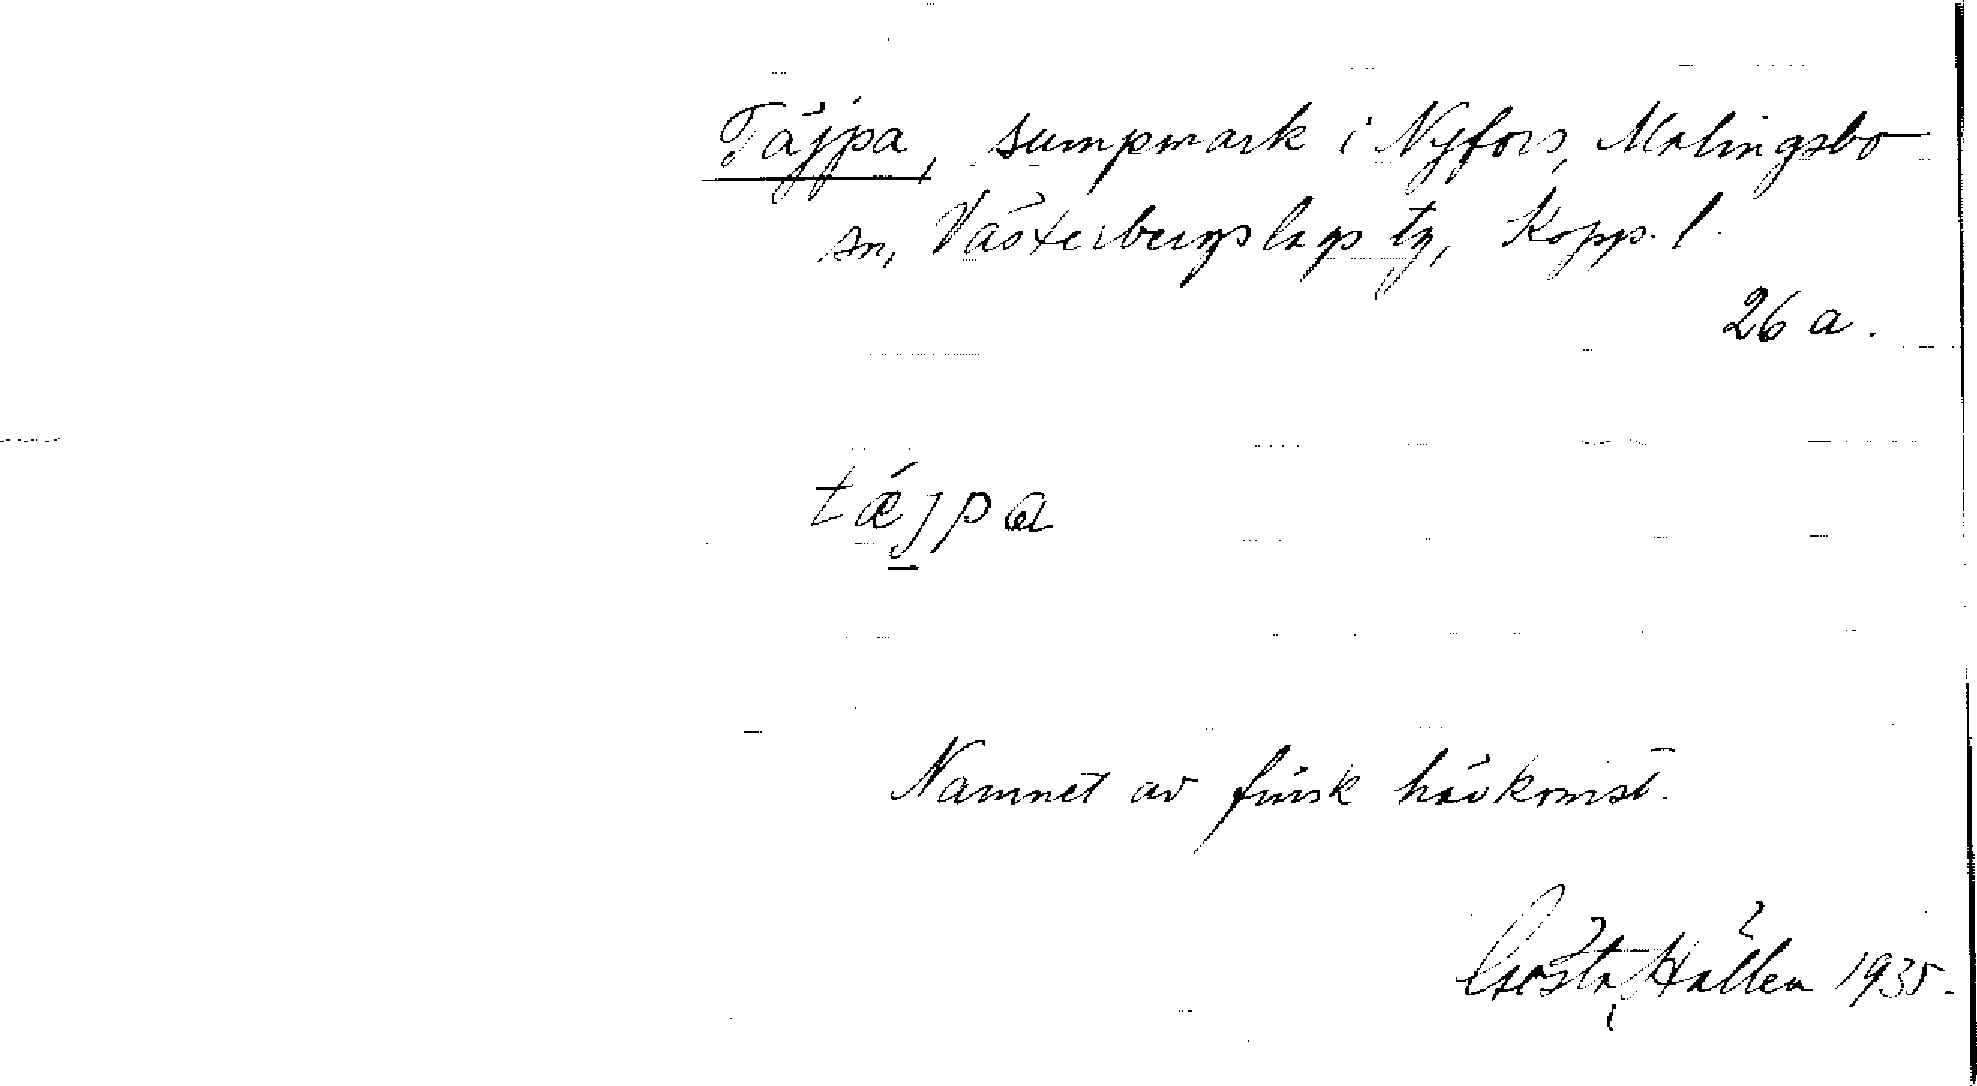 Täjpa, sumpmark i Nyfors, Malingsbo
sn, Västerbergslags tg, Kopp. l.
26 a.
tǽjpa
Namnet av finsk härkomst.
Gösta Hallen 1935.